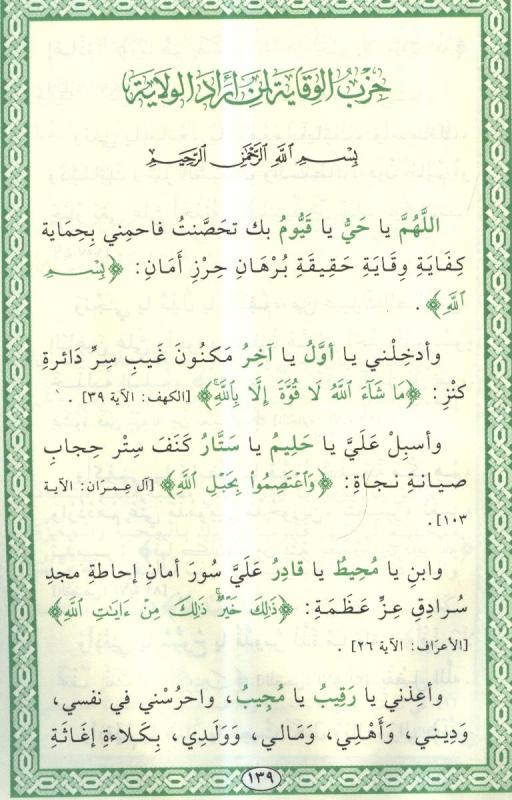 حِزْبُ الوِقَايَةِ لِمَنْ أَرَادَ الوِلَايَةَ
بِسْمِ اللَّهِ الرَّحْمَٰنِ الرَّحِيمِ
اللَّهُمَّ يا حَيُّ يا قَيُّومُ بك تحَصَّنتُ فاحمِني بِحِمَاية
كِفَايَةِ وِقَايَةِ حَقِيقَةِ بُرْهَانِ حِرْزِ أَمَانِ: ﴿بِسْمِ
اللَّهِ﴾ .
وأدخِلْني يا أوَّلُ يا آخِرُ مَكنُونَ غَيبِ سِرِّ دَائرةِ
كنْزِ: ﴿مَا شَآءَ اللَّهُ لَا قُوَّةَ إِلَّا بِاللَّهِ﴾ [الكهف: الآية ٣٩] .
وأسبِلْ عَلَيَّ يا حَلِيمُ يا سَتَّارُ كَنَفَ سِتْرِ حِجابِ
صيانةِ نجاةِ: ﴿وَاعْتَصِمُوا بِحَبْلِ اللَّهِ﴾ [آل عِمرَان: الآية
١٠٣].
وابنِ يا مُحِيطُ يا قادِرُ عَلَيَّ سُورَ أمانِ إحاطةِ مجدِ
سُرادِقِ عِزِّ عَظَمَةِ: ﴿ذَٰلِكَ خَيْرٌ ذَٰلِكَ مِنْ ءَايَٰتِ اللَّهِ﴾
[الأعرَاف: الآية ٢٦] .
وأعِذني يا رَقِيبُ يا مُجِيبُ، واحرُسْني في نفسي،
وَدِيني، وَأَهْلِي، وَمَالي، وَوَلَدِي، بِكَلاءةِ إغَاثَةِ
١٣٩